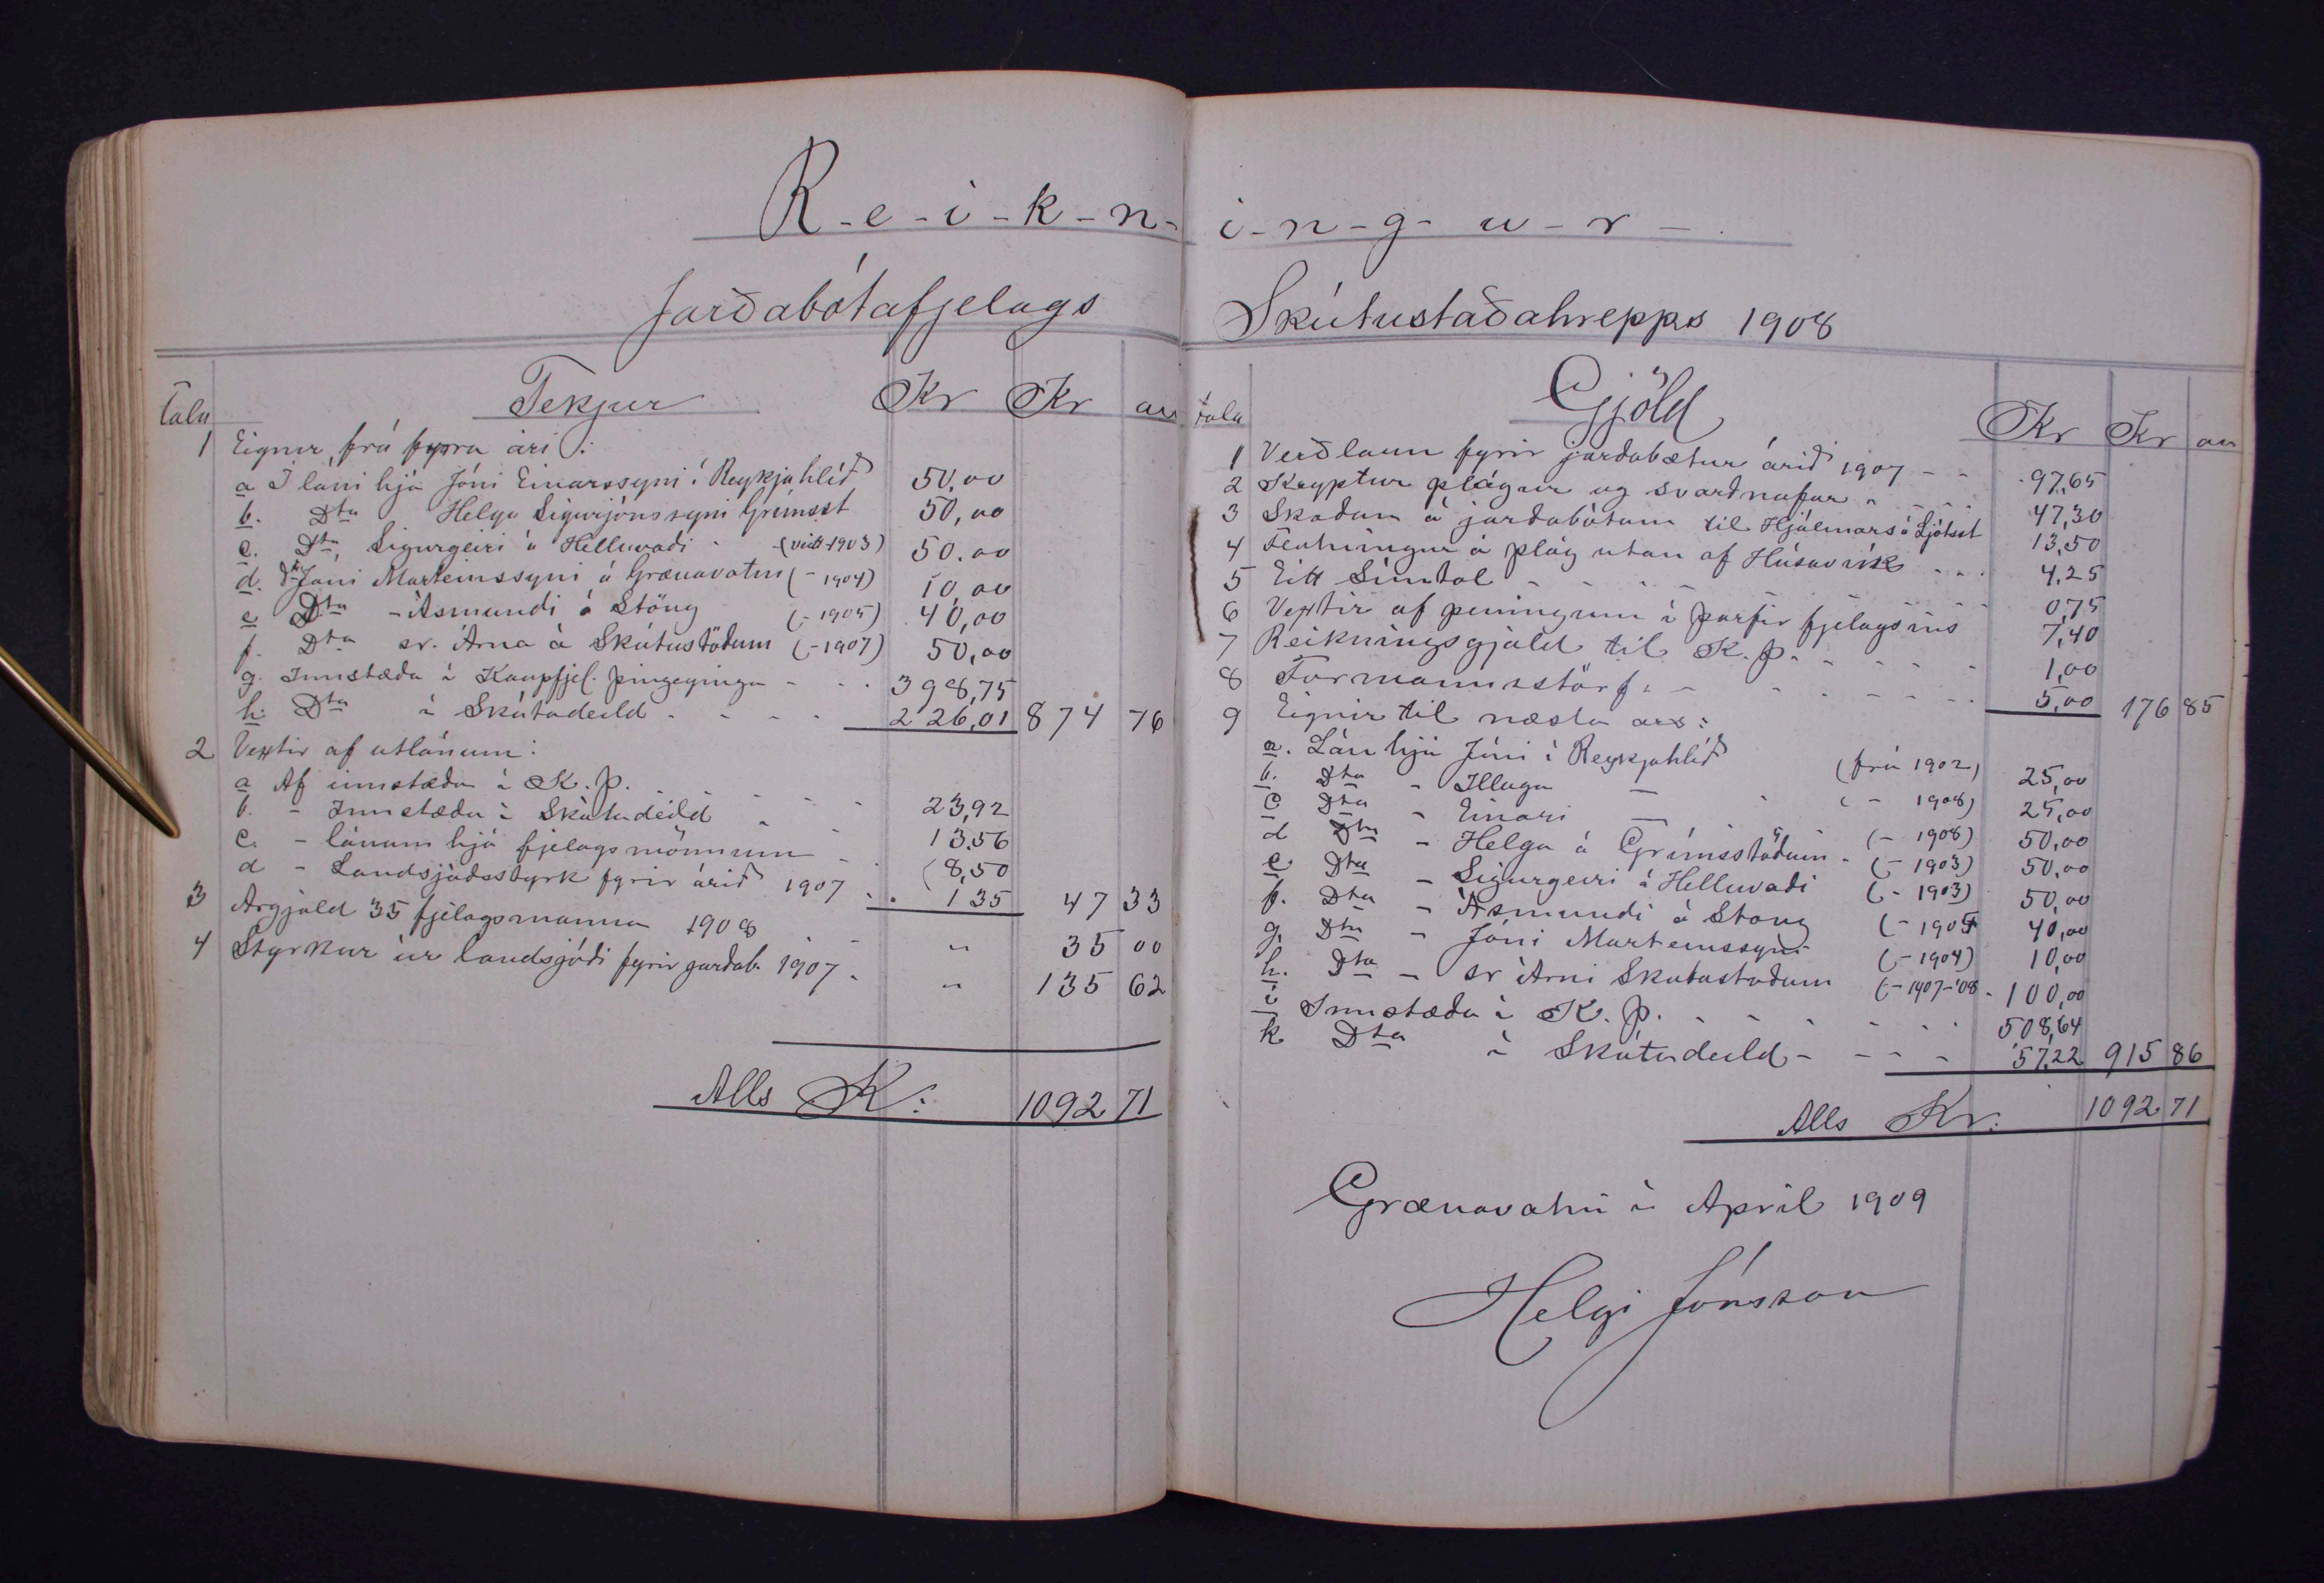 R-e-i-k-n-i-n-g-u-r-
Jarðabótafjelags Skútustaðahrepps 1908
Tala Tekjur Kr Kr au
1 Eignir frá fyrra ári:
a Í láni hjá Jóni Einarssyni í Reykjahlíð 50,00
b. Dto Helga Sigurjónssyni Grímsst 50,00
c. Dto, Sigurgeiri á Helluvaði - (veitt 1903) 50.00
d. Dto Jóni Marteinssyni á Grænavatni (- 1904) 10,00
e Dto - Ásmundi á Stöng (- 1905) 40,00
f. Dto sr. Árna á Skútustöðum (- 1907) 50,00
g. Innstæða í Kaupfjel. Þingeyinga - - . 398,75
h. Dto í Skútudeild - - - - 226,01 874 76
2 Vextir af utlánum:
a Af innstæðu í K.Þ. - - - - 23,92
b. - Innstæðu í Skútudeild - - 13.56
c. - lánum hjá fjelagsmönnum - 8,50
d - Landsjóðsstyrk fyrir árið 1907 . . 1 35 47 33
3 Argjald 35 fjelagsmanna 1908 - - " 35 00
4 Styrkur úr landsjóði fyrir jarðab. 1907 - " 135 62
Alls K: 1092 71
tala Gjöld Kr Kr au
1 Verðlaun fyrir jarðabætur árið 1907 - - 97,65
2 Keyptur plógur og svarðnafar - - - - 47,30
3 Skoðun á jarðabótum til Hjálmars á Ljótsst 13,50
4 Flutningur á plóg utan af Húsavík - - . 4,25
5 Eitt Símtal - - - - - - - 0,75
6 Vextir af peningum í þarfir fjelagsins 7,40
7 Reikningsgjald til K.Þ. - - - - - 1,00
8 Formannsstörf. - - - - - - - 5,00 176 85
9 Eignir til næsta árs:
a. Lán hjá Jóni í Reykjahlíð (frá 1902) 25,00
b. Dto - Illuga — - ( - 1908) 25,00
c Dto - Einari — (- 1908) 50,00
d Dto - Helga á Grímsstöðum - (- 1903) 50,00
e Dto - Sigurgeiri á Helluvaði (- 1903) 50,00
f. Dto - Ásmundi á Stong (- 1905 40,00
g. Dto - Jóni Marteinssyni (- 1904) 10,00
h. Dto - sr Árni Skutustoðum (- 1907-'08 - 100,00
i Innstæða í K.Þ. - - - - - - 508,64
k Dto í Skútudeild - - - - 57,22 915 86
Alls Kr: 1092 71
Grænavatni í Apríl 1909
Helgi Jónsson